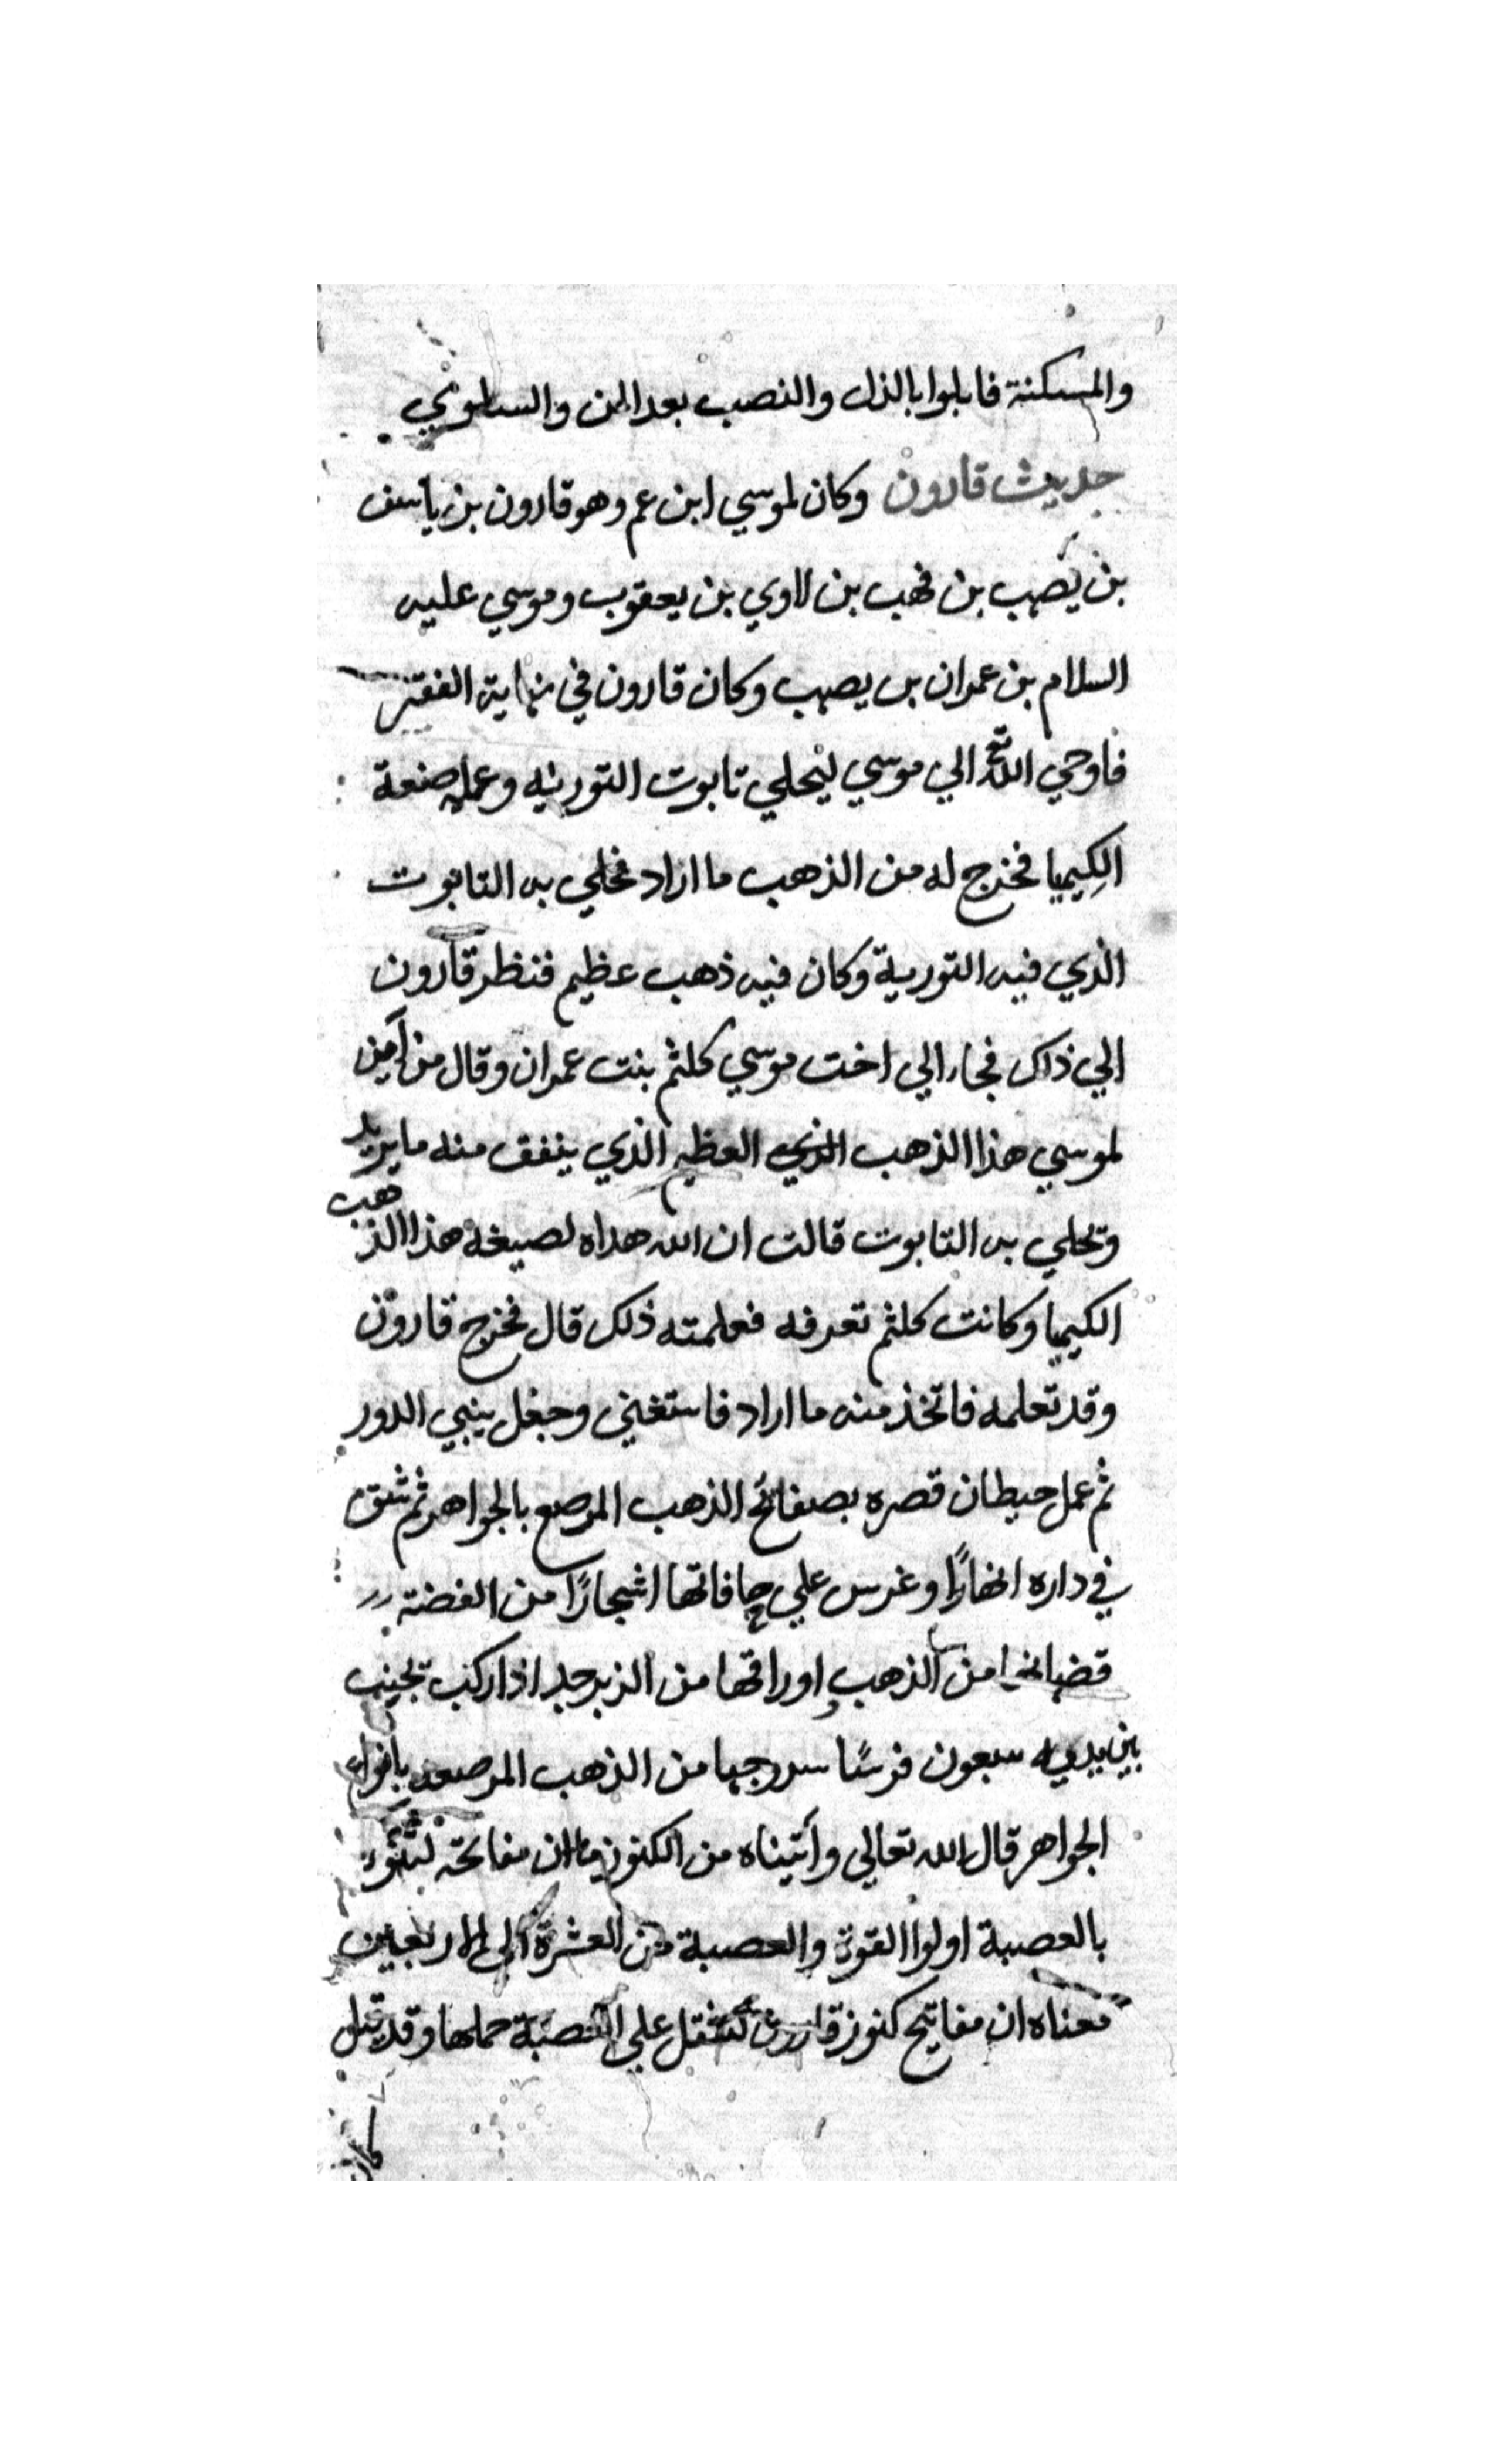 والمسكنة فابلوا بالذل والنصب بعد المن والسلوي
حديث قارون وكان لموسي ابن عم وهو قارون بن ياسف
بن يصهب بن فهب بن لاوي بن يعقوب وموسي عليه
السلام بن عمران بن يصهب وكان قارون في نهاية الفقر
فاوحي الله تع الي موسي ليحلي تابوت التورية وعمله صنعة
الكِيميا فخرج له من الذهب ما اراد فحلي به التابوت
الذي فيه التورية وكان فيه ذهب عظيم فنظر قارون
الي ذلك فجاء الي اخت موسي كلثم بنت عمران وقال من اين
لموسي هذا الذهب الذي العظيم الذي ينفق منه ما يريد
وتحلي به التابوت قالت ان الله هداه لصيغة هذا الذهب
الكيميا وكانت كلثم تعرفه فعلمته ذلك قال فخرج قارون
وقد تعلمه فاتخذ منه ما اراد فاستغني وجعل يبني الدور
ثم عمل حيطان قصره بصفائح الذهب المرصع بالجواهر ثم شق
في داره انهارًا وغرس علي حافاتها اشجارًا من الفضة
قضبانها من الذهب واوراقها من الزبرجد اذا ركب تجنب
بين يديه سبعون فرسًا سروجها من الذهب المرصعه بانواع
الجواهر قال الله تعالي وآتيناه من الكنوز ما ان مفاتحه لتنوء
بالعصبة اولوا القوة والعصبة من العشرة الي الاربعين
معناه ان مفاتيح كنوز قارون لتثقل علي العصبة حملها وقد قيل
كان